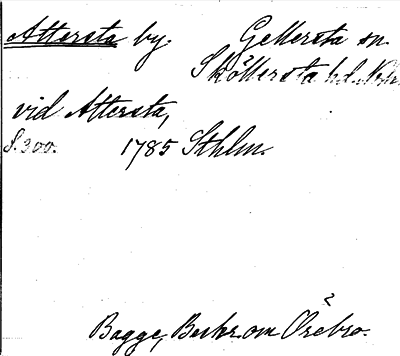 Attersta by. Gellersta sn.
Sköllersta hd. Nke.
vid Attersta,
S. 300. 1785 Sthlm.
Bagge, Beskr. om Örebro.